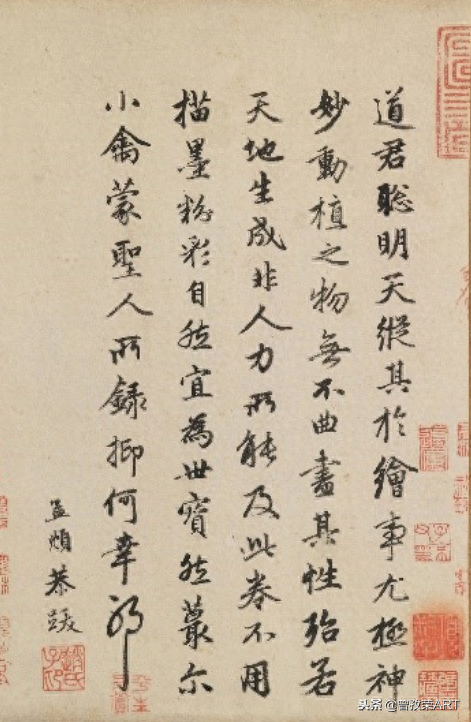 道君聰明天縱其於繪事尤極神
妙動植之物無不曲盡其性殆若
天地生成非人力所能及此卷不用
描墨粉彩自然宜為世寶然蕞尔
小禽蒙聖人所錄抑何幸耶
孟頫恭跋
趙氏子昂
头条 @曾孜荣ART